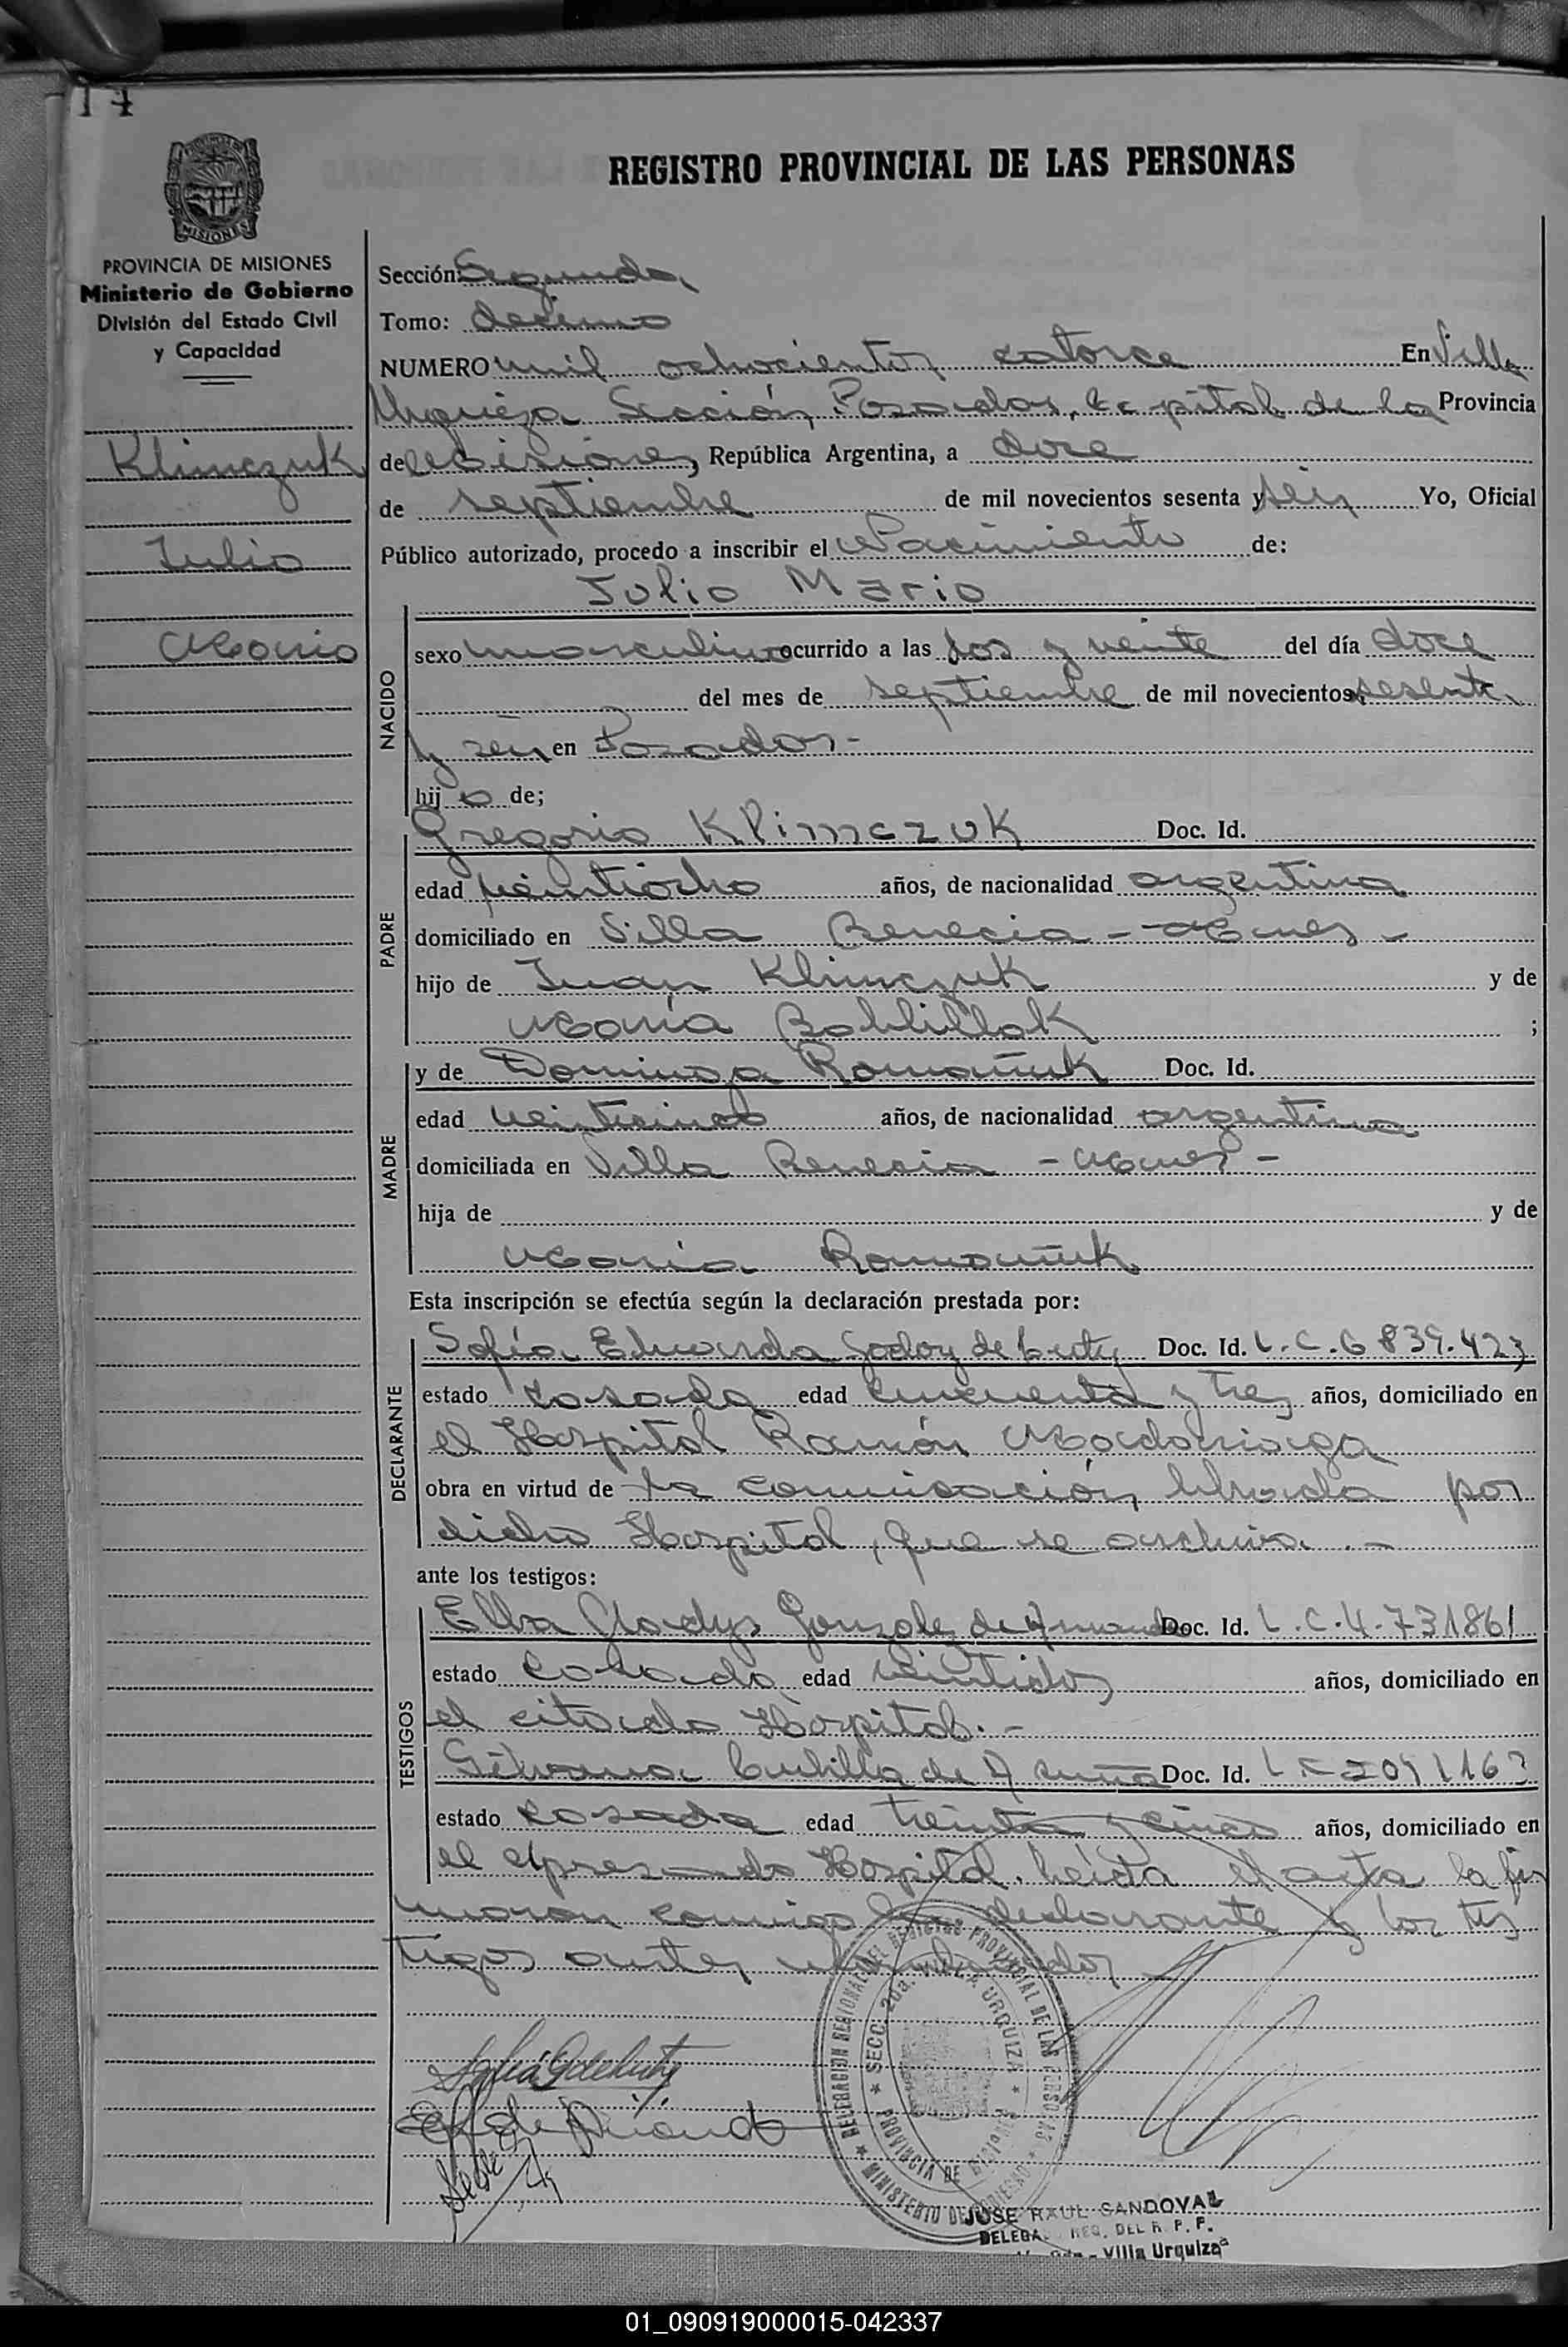 14
REGISTRO PROVINCIAL DE LAS PERSONAS
MISIONES
PROVINCIA DE MISIONES
Ministerio de Gobierno
División del Estado Civil
y Capacidad
Klimczuk
Julio
Mario
Sección: Segunda
Tomo: decimo
NUMERO mil ochocientos catorce En Villa
Urquiza Sección, Posadas, Capital de la Provincia
de Misiones, República Argentina, a doce
de septiembre de mil novecientos sesenta y seis Yo, Oficial
Público autorizado, procedo a inscribir el Nacimiento de:
Julio Mario
NACIDO
sexo masculino ocurrido a las dos y veinte del día doce
del mes de septiembre de mil novecientos sesenta
y seis en Posadas -
hij o de;
PADRE
Gregorio Klimczuk Doc. Id.
edad veintiocho años, de nacionalidad argentina
domiciliado en Villa Benecia -
hijo de Juan Klimczuk y de
María ;
MADRE
y de Dominga Romañuk Doc. Id.
edad veinticinco años, de nacionalidad argentina
domiciliada en Villa Benecia -
hija de y de
Maria Romañuk
Esta inscripción se efectúa según la declaración prestada por:
DECLARANTE
Sofía Eduarda Godoy de Doc. Id. L.C. 6 839.423
estado casada edad cincuenta y tres años, domiciliado en
el Hospital Ramón Madariaga
obra en virtud de la comunicación librada por
dicho Hospital, que se archiva. -
ante los testigos:
TESTIGOS
Elba Gladys Gonzalez de Doc. Id. L.C. 4.731861
estado casada edad veintidos años, domiciliado en
el citado Hospital. -
de Acuña Doc. Id.
estado casada edad treinta y cinco años, domiciliado en
el expresado Hospital. Leída el acta la fir
maron conmigo la declarante y los tes
tigos antes
DELEGACION REGIONAL DEL REGISTRO PROVINCIAL DE LAS PERSONAS
MINISTERIO DE GOBIERNO
SECC. 2da. VILLA URQUIZA
PROVINCIA DE MISIONES
JOSE RAUL SANDOVAL
DELEGA. REG. DEL R. P. P.
- Villa Urquiza
01_090919000015-042337